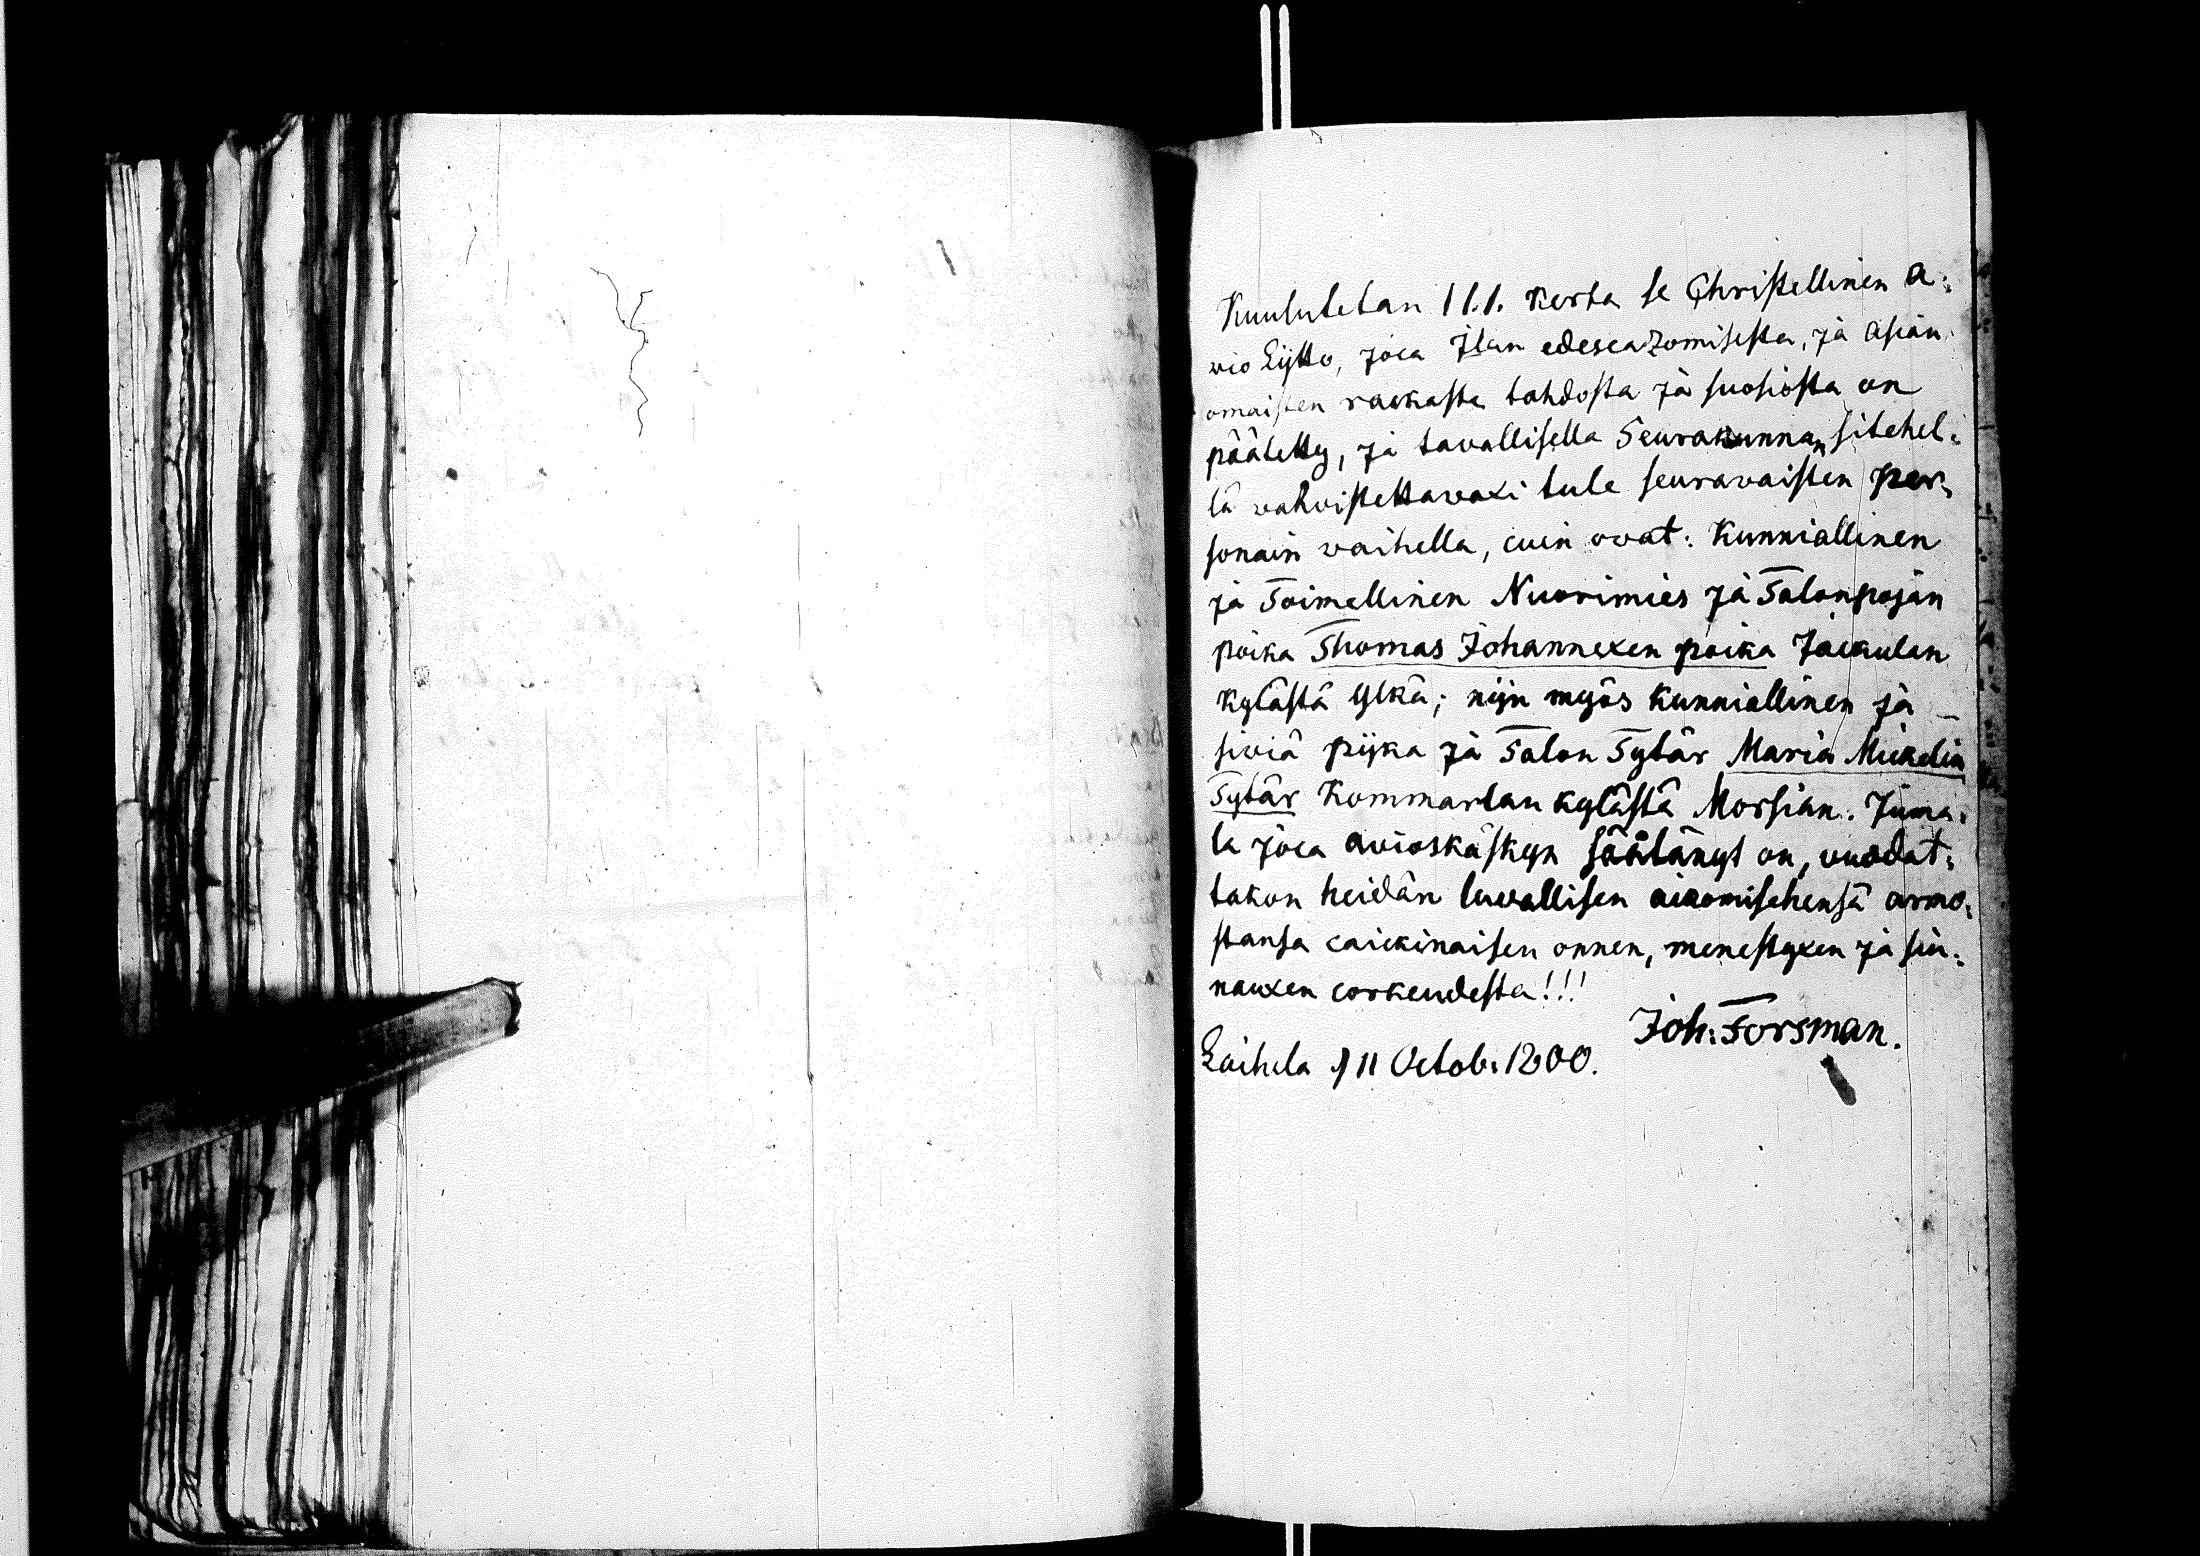 Kuulutetan 1 1.1. Kerta se Christellinen a:
vio Lijtto, joca Jlan edescazomisesta, ja asian
omaisten rackasta tahdosta ja suosiosta on
päätetty, ja tavallisella Seurakunnan sitehel:
lä vahvistettavaxi tule seuravaisten per:
sonain vaihella, cuin ovat: Kunniallinen
ja Toimellinen Nuorimies ja Talonpojan
poika Thomas Johannexen poika Jäckulan
kylästä ylkä; nijn myös kunniallinen ja
siviä pijka ja Talon Tytär Maria Mickelin
Tytär Kommarlan kylästä Morsian. Juma:
la joca avioskäskyn säätänyt on, vuodat:
takon heidän luvallisen aicomisehensä armo:
stansa caickinaisen onnen, menestyxen ja siu:
nauxen corkeudesta!!!
Joh: Forsman.
Laihela d 11 Octob: 1800.